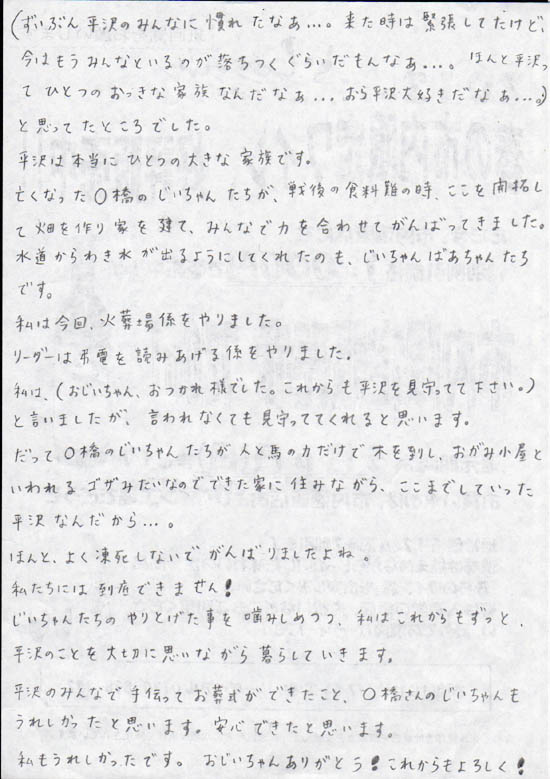 (ずいぶん平沢のみんなに慣れたなぁ…。来た時は緊張してたけど、
今はもうみんなといるのが落ちつくぐらいだもんなぁ…。ほんと平沢っ
てひとつのおっきな家族なんだなぁ…おら平沢大好きだなぁ…。)
と思ってたところでした。
平沢は本当にひとつの大きな家族です。
亡くなった〇橋のじいちゃんたちが、戦後の食料難の時、ここを開拓し
て畑を作り家を建て、みんなで力を合わせてがんばってきました。
水道からわき水が出るようにしてくれたのも、じいちゃんばあちゃんたち
です。
私は今回、火葬場係をやりました。
リーダーは弔電を読みあげる係をやりました。
私は、(おじいちゃん、おつかれ様でした。これからも平沢を見守ってて下さい。)
と言いましたが、言われなくても見守っててくれると思います。
だって〇橋のじいちゃんたちが人と馬の力だけで木を倒し、おがみ小屋と
いわれるゴザみたいなのでできた家に住みながら、ここまでしていった
平沢なんだから…。
ほんと、よく凍死しないでがんばりましたよね。
私たちには到底できません!
じいちゃんたちのやりとげた事を噛みしめつつ、私はこれからもずっと、
平沢のことを大切に思いながら暮らしていきます。
平沢のみんなで手伝ってお葬式ができたこと、〇橋さんのじいちゃんも
うれしかったと思います。安心できたと思います。
私もうれしかったです。おじいちゃんありがとう!これからもよろしく!